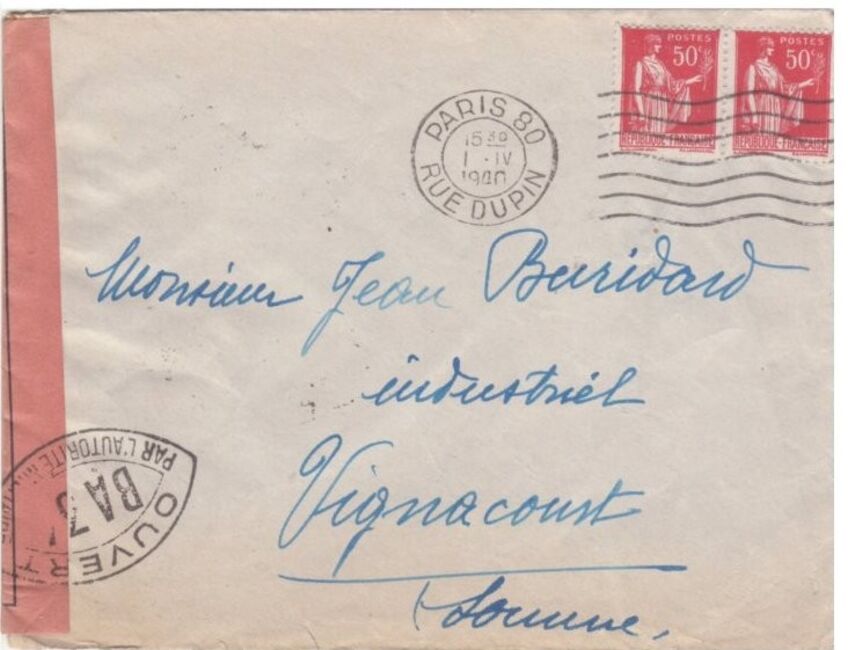 POSTES POSTES
50c 50c
RÉPUBLIQUE-FRANÇAISE RÉPUBLIQUE-FRANÇAISE
PARIS 80
15 30
1 - IV
1940
RUE DUPIN
Monsieur Jean Buridard
industriel
Vignacourt
Somme.
OUVERT
PAR L'AUTORITÉ MILITAIRE